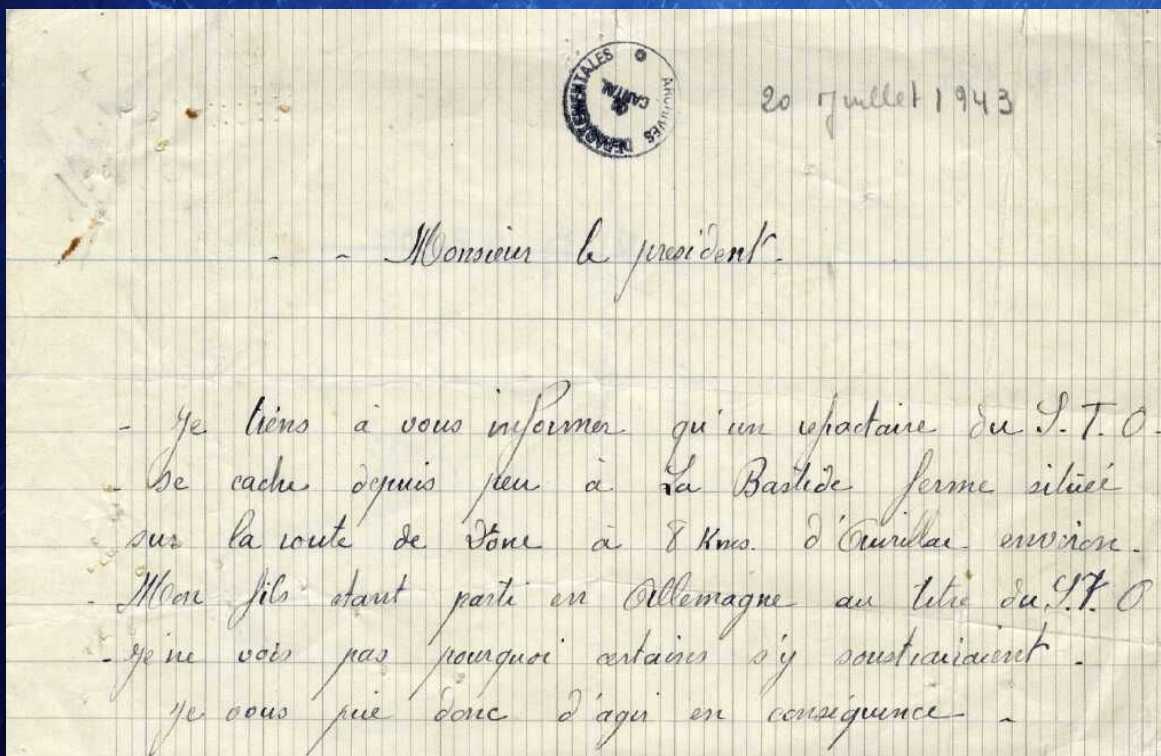 ARCHIVES DÉPARTEMENTALES
DU
CANTAL
20 Juillet 1943
- - Monsieur le president.
- Je tiens à vous informer qu'un refractaire du S.T.O.
- se cache depuis peu à La Bastide ferme située
sur la route de à 8 Kms. d'Aurillac environ.
- Mon fils etant parti en Allemagne au titre du S.T.O
- Je ne vois pas pourquoi certains s'y soustrairaient.
Je vous prie donc d'agir en conséquence -